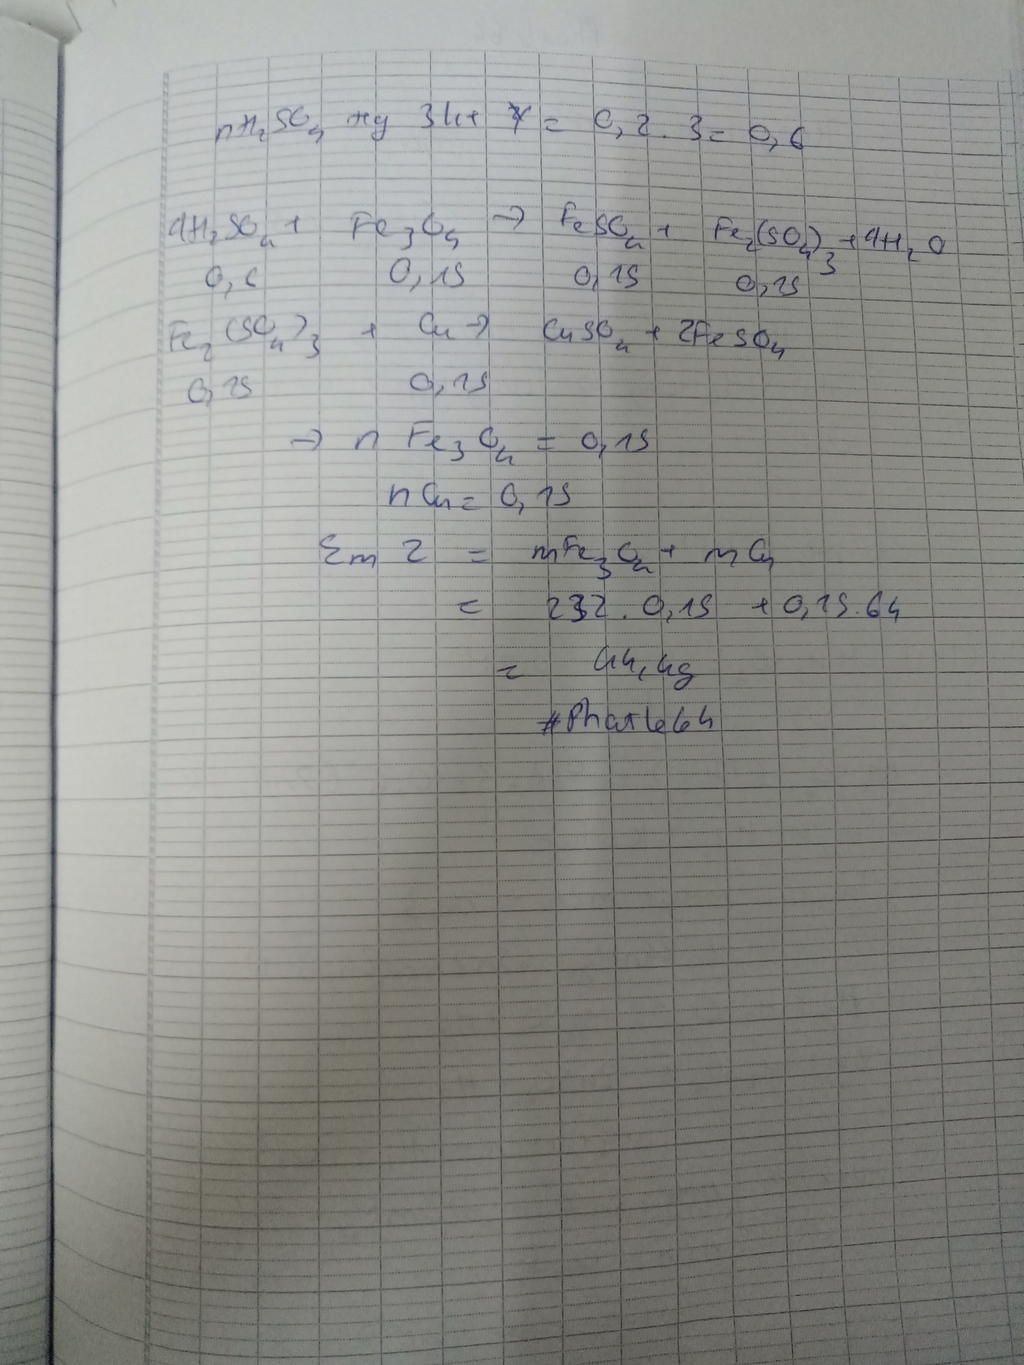 nH₂SO₄ = 0,2 . 3 = 0,6
4H₂SO₄ + Fe₃O₄ → FeSO₄ + Fe₂(SO₄)₃ + 4H₂O
0,6 0,15 0,15 0,15
Fe₂(SO₄)₃ + Cu → CuSO₄ + 2FeSO₄
0,15 0,15
→ n Fe₃O₄ = 0,15
nCu = 0,15
Σm = mFe₃O₄ + mCu
= 232 . 0,15 + 0,15 . 64
= 44,4g
#Phatle64